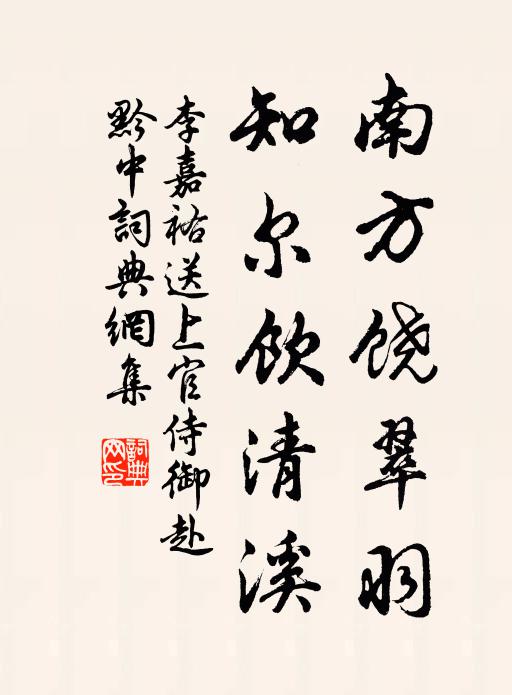 南方饶翠羽
知尔饮清溪
李嘉祐送上官侍御赴
黔中詞典網集
詞典網印